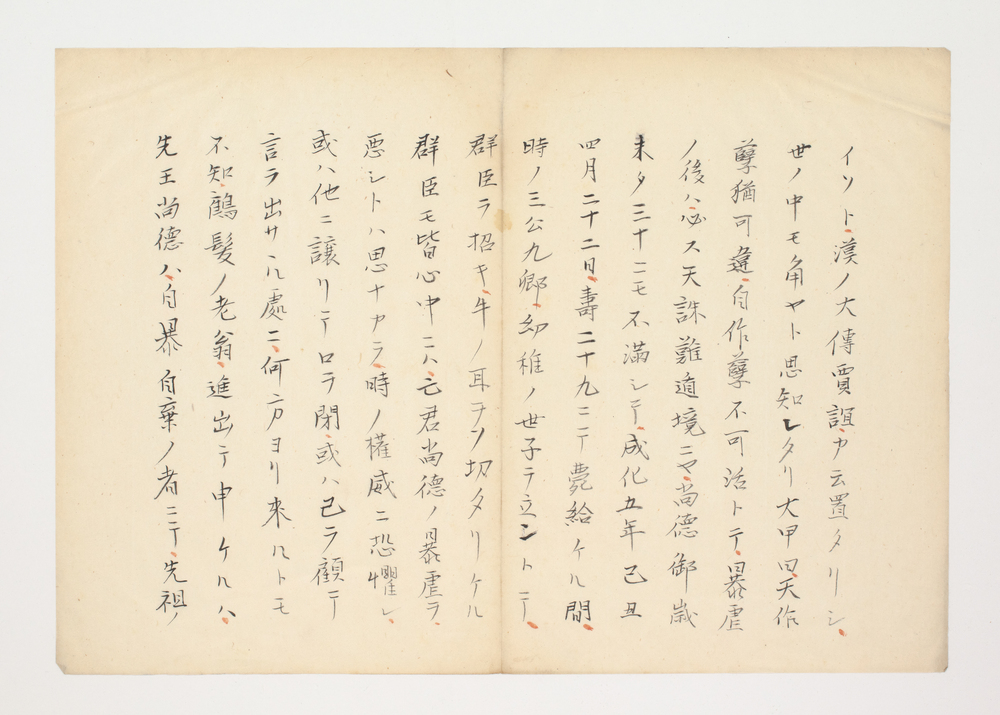 イソト、漢ノ大傳賈誼、カ云置タリシ、
世ノ中モ角ヤト思知レタリ大甲曰、天作
孽猶可違、自作孽不可活トテ、暴虐
ノ後ハ、必ス天誅難遁境ニヤ、尚德御歳
未タ三十ニモ不滿シテ、成化五年己丑
四月二十二日、壽二十九ニテ薨給ケル間、
時ノ三公九卿、幼稚ノ世子ヲ立ントテ、
群臣ヲ招キ、牛ノ耳ヲソ切タリケル
群臣モ皆心中ニハ、亡君尚德ノ暴虐ヲ、
惡シトハ思ナカラ、時ノ權威ニ恐懼シ、
或ハ他ニ讓リテ口ヲ閉、或ハ己ヲ顧テ
言ヲ出サヽル處ニ、何方ヨリ來ルトモ
不知、鶴髪ノ老翁、進出テ申ケルハ、
先王尚德ハ、自暴自棄ノ者ニテ、先祖ノ